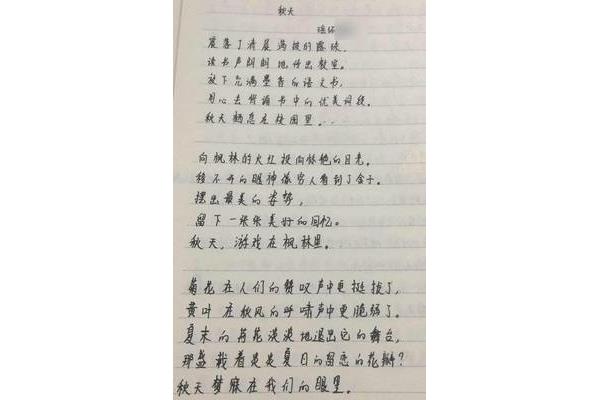 秋天
瑶怀
震落了清晨满披的露珠,
读书声朗朗地传出教室。
放下充满墨香的语文书,
用心去背诵书中的优美词段。
秋天栖息在校园里。..
向枫林的火红投向惊艳的目光。
移不开的眼神像穷人看到了金子。
摆出最美的姿势,
留下一张张美好的回忆。
秋天,游戏在枫林里。
菊花在人们的赞叹声中更挺拔了,
黄叶在秋风的呼啸声中更脆弱了。
夏末的荷花淡淡地退出它的舞台,
那盆载着是是夏日的留恋的花瓣?
秋天梦寐在我们的眼里。